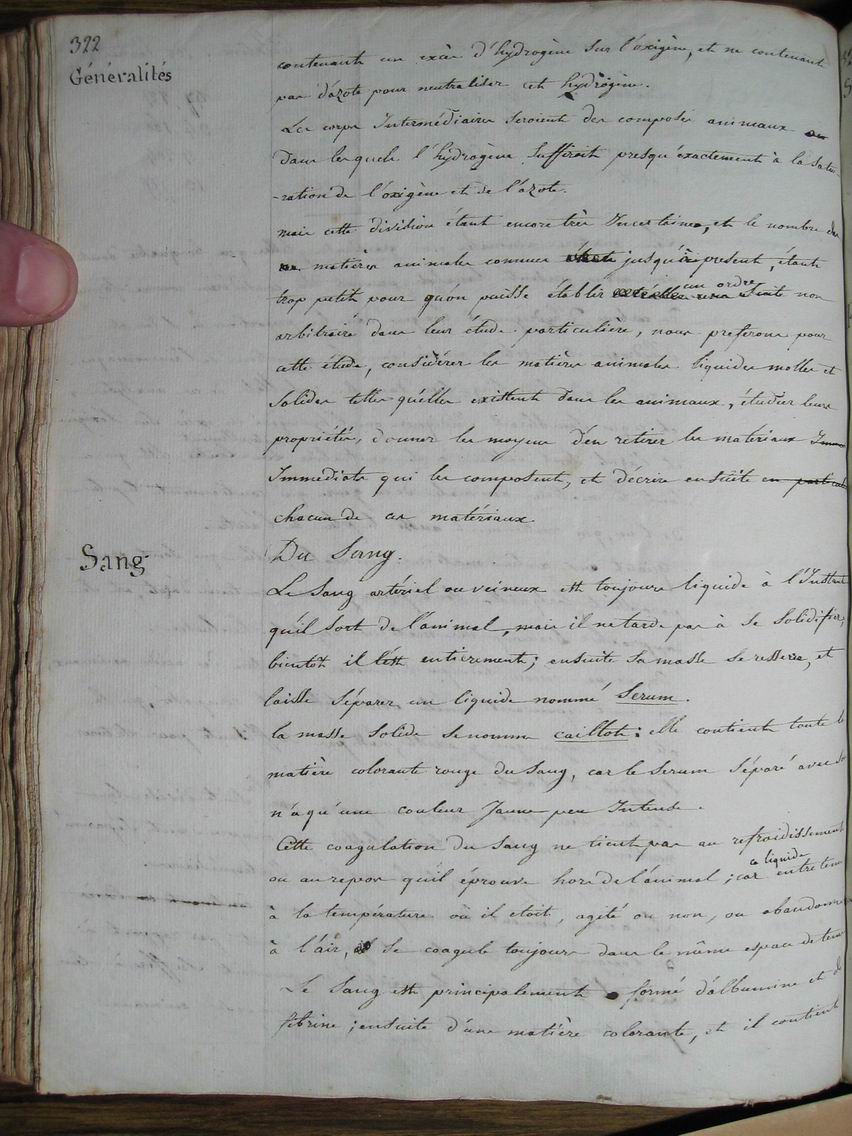 322
Généralités
contenant un excès d'hydrogène sur l'oxigène, et ne contenant
pas d'azote pour neutraliser cet hydrogène.
Les corps Intermédiaires seroient des composés animaux
dans lesquels l'hydrogène suffiroit presqu'exactement à la satu
-ration de l'oxigène et de l'azote.
mais cette division étant encore très Incertaine, et le nombre des
matières animales connues jusqu'à présent, étant
trop petit pour qu'on puisse établir un ordre non
arbitraire dans leur étude particulière, nous préférons pour
cette étude, considérer les matières animales liquides molles et
solides telles quelles existent dans les animaux, étudier leurs
propriétés, donner les moyens d'en retirer les matériaux
Immédiats qui les composent, et décrire ensuite
chacun de ces matériaux.
Sang
Du Sang.
Le Sang artériel ou veineux est toujours liquide à l'Instant
qu'il sort de l'animal, mais il ne tarde pas à se solidifier,
bientôt il l'est entierement; ensuite sa masse se resserre, et
laisse séparer un liquide nommé Serum.
la masse solide se nomme caillot: elle contient toute la
matière colorante rouge du sang, car le serum séparé avec soin
n'a qu'une couleur Jaune peu Intense.
Cette coagulation du sang ne tient pas au refroidissement
ou au repos qu'il éprouve hors de l'animal; car ce liquide entretenu
à la température où il etoit, agité ou non, ou abandonné
à l'air, se coagule toujours dans le même espace de tems
Le Sang est principalement formé d'albumine et de
fibrine; ensuite d'une matière colorante, et il contient